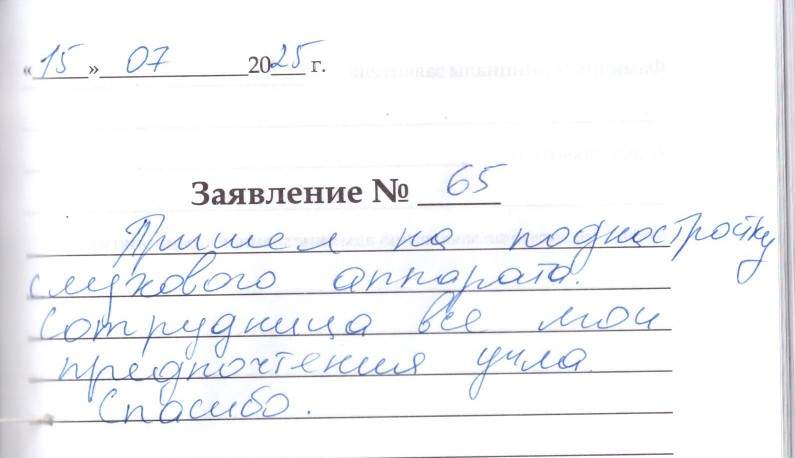 «15» 07 2025 г.
Заявление № 65
Пришел на поднастройку
слухового аппарата.
Сотрудница все мои
предпочтения учла.
Спасибо.